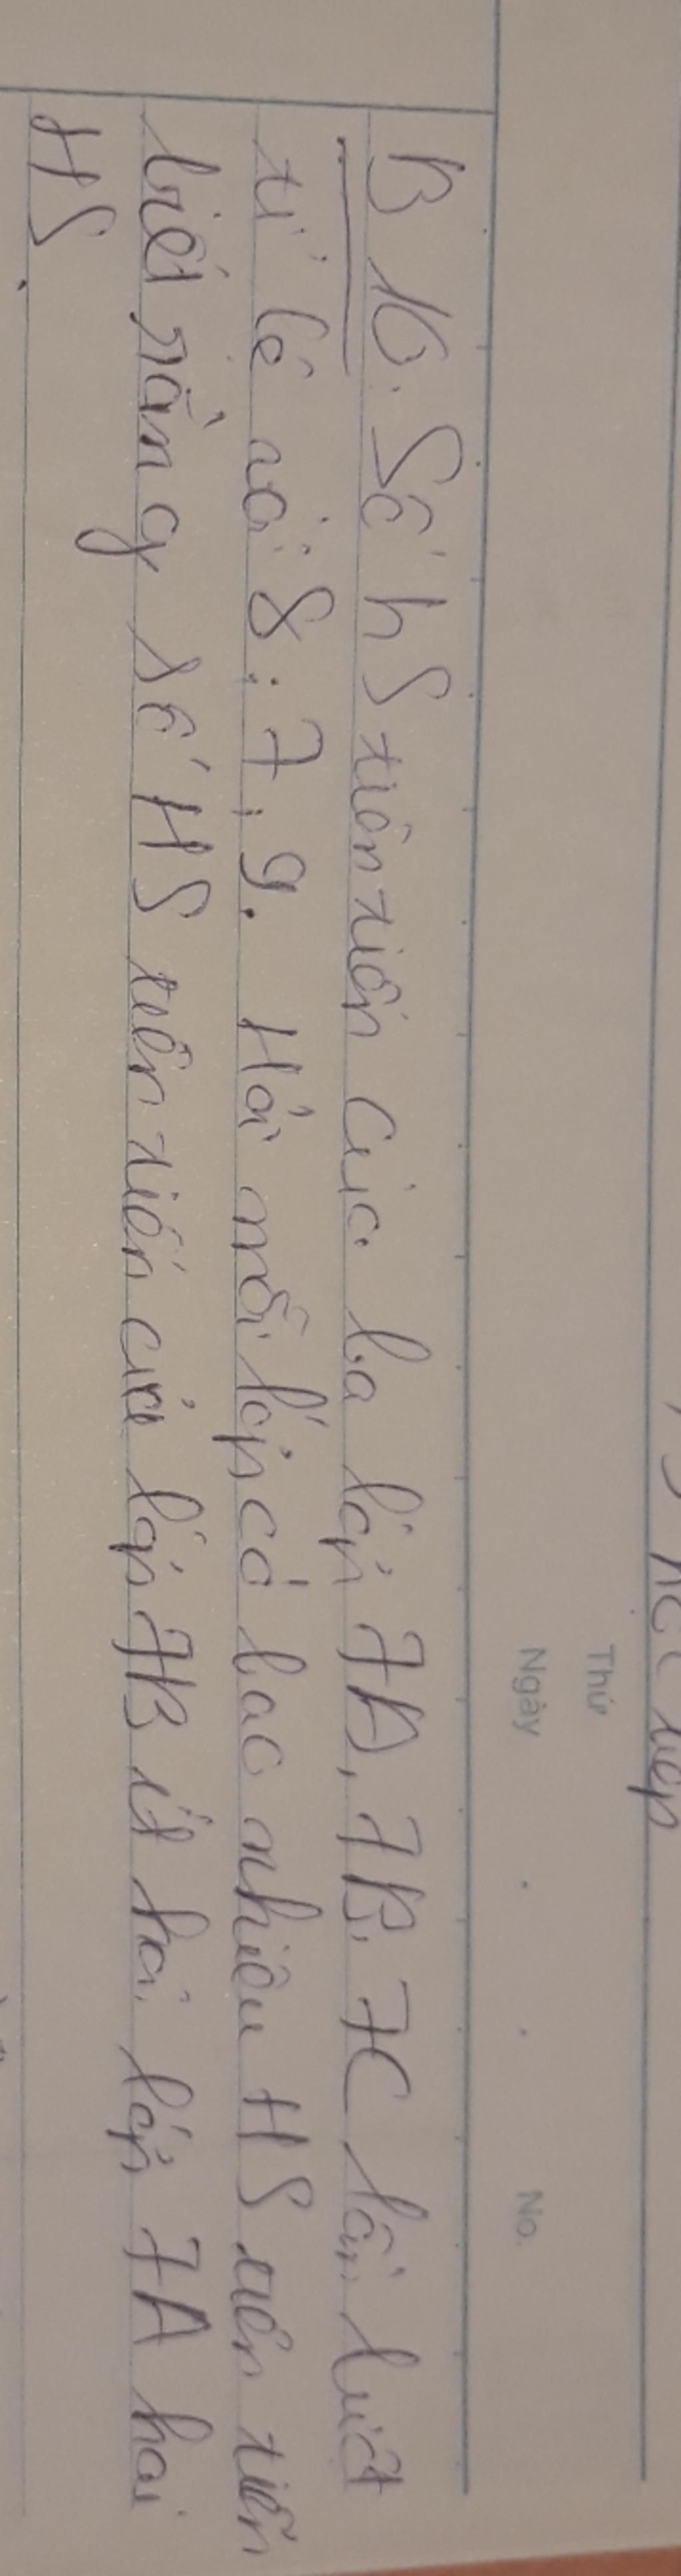 Thứ
Ngày
No.
B 16. Số hS tiên tiến của ba lớp 7A, 7B, 7C lần lượt
tỉ lệ với 8; 7; 9. Hỏi mỗi lớp có bao nhiêu HS tiên tiến
biết rằng số HS tiên tiến của lớp 7B ít hơi lớp 7A hai
HS.